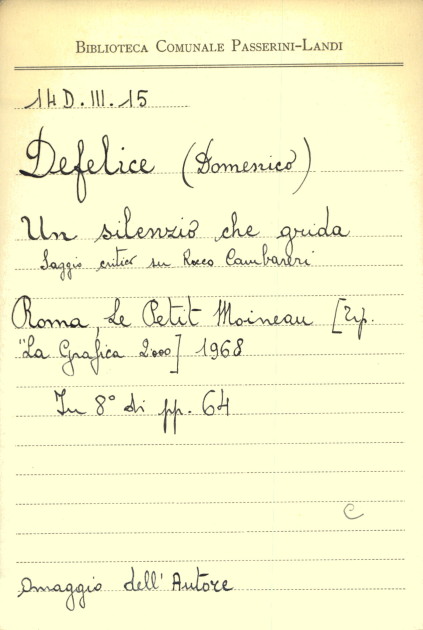 BIBLIOTECA COMUNALE PASSERINI-LANDI
14 D. III. 15
Defelice (Domenico)
Un silenzio che grida
Saggio critico su Rocco Cambareri
Roma, Le Petit Moineau [Tip.
"La Grafica 2000] 1968
In 8° di pp. 64
C
Omaggio dell'Autore